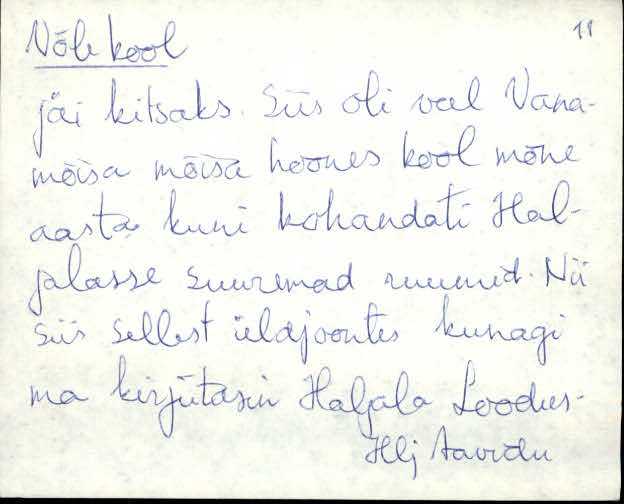 11
Võle kool
jäi kitsaks. Siis oli veel Vana-
mõisa mõisa hoones kool mõne
aasta kuni kohandati Hal-
jalasse suuremad ruumid. Nii
siis sellest üldjoontes kunagi
ma kirjutasin Haljala Loodus-
Hlj Aavidu